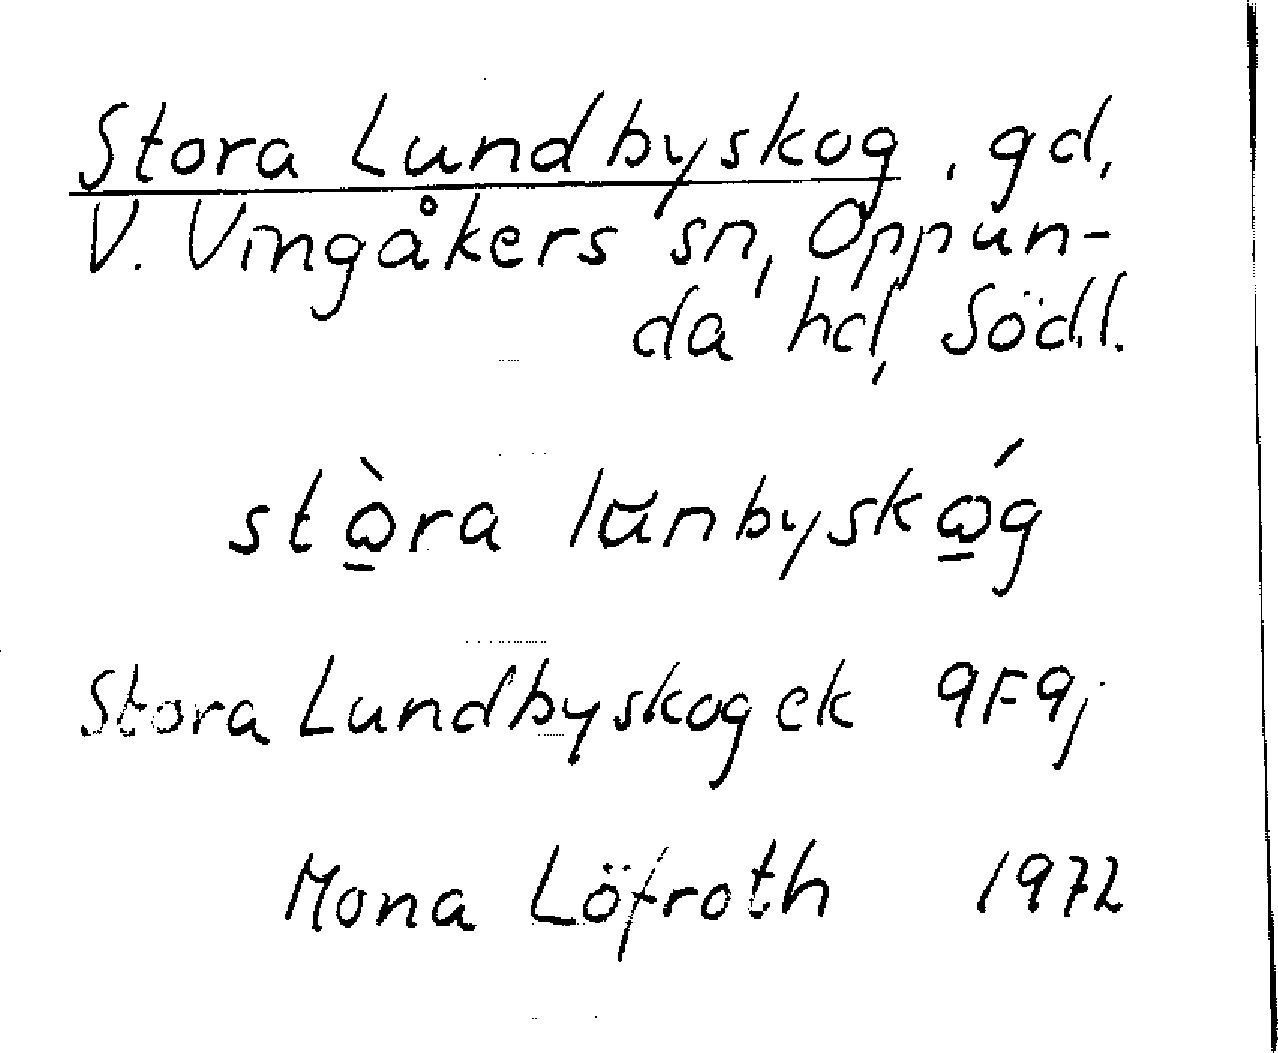 Stora Lundbyskog, gd,
V. Vingåkers sn, Oppun-
da hd, Södl.
stꞷ̠̀ra lŭnbyskꞷ̠́g
Stora Lundbyskog ek 9F9j
Mona Löfroth 1972